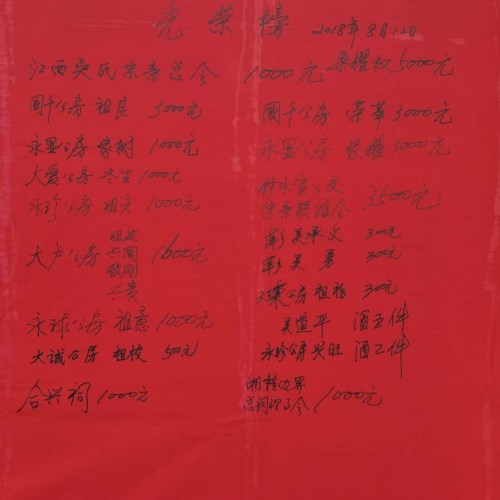 光荣榜 2018年8月12日
江西吴氏宗亲总会 1000元
国千公房 祖良 3000元
永显公房 家树 1000元
大爱公房 冬生 1000元
永珍公房 祖文 1000元
大卢公房 兴国 兴贵 1600元
永球公房 祖意 1000元
大诚公房 祖枝 500元
合兴祠 1000元
荣耀权 5000元
国千公房 荣华 3000元
永显公房 家耀 3000元
宗亲联谊会 3500元
彭 吴承文 300元
彭 吴勇 300元
公房 祖福 300元
吴道平 酒五件
永珍公房 兴旺 酒乙件
总祠理事会 1000元